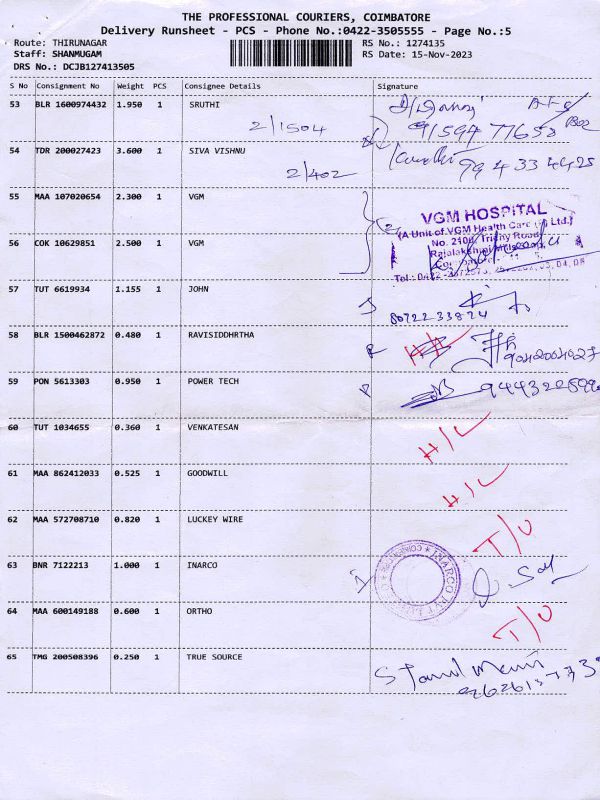 THE PROFESSIONAL COURIERS, COIMBATORE
Delivery Runsheet - PCS - Phone No.:0422-3505555 - Page No.:5
Route: THIRUNAGAR RS No.: 1274135
Staff: SHANMUGAM RS Date: 15-Nov-2023
DRS No.: DCJB127413505
S No Consignment No Weight PCS Consignee Details Signature
53 BLR 1600974432 1.950 1 SRUTHI
2/1504
54 TDR 200027423 3.600 1 SIVA VISHNU
2/402
55 MAA 107020654 2.300 1 VGM
VGM HOSPITAL
(A Unit of VGM Health Care Ltd.)
No. 2100, Trichy Road
56 COK 10629851 2.500 1 VGM
57 TUT 6619934 1.155 1 JOHN
8072233824
58 BLR 1500462872 0.480 1 RAVISIDDHRTHA
H/L
59 PON 5613303 0.950 1 POWER TECH
60 TUT 1034655 0.360 1 VENKATESAN
H/L
61 MAA 862412033 0.525 1 GOODWILL
H/L
62 MAA 572708710 0.820 1 LUCKEY WIRE
T/U
63 BNR 7122213 1.000 1 INARCO
INARCO PVT
64 MAA 600149188 0.600 1 ORTHO
T/U
65 TMG 200508396 0.250 1 TRUE SOURCE